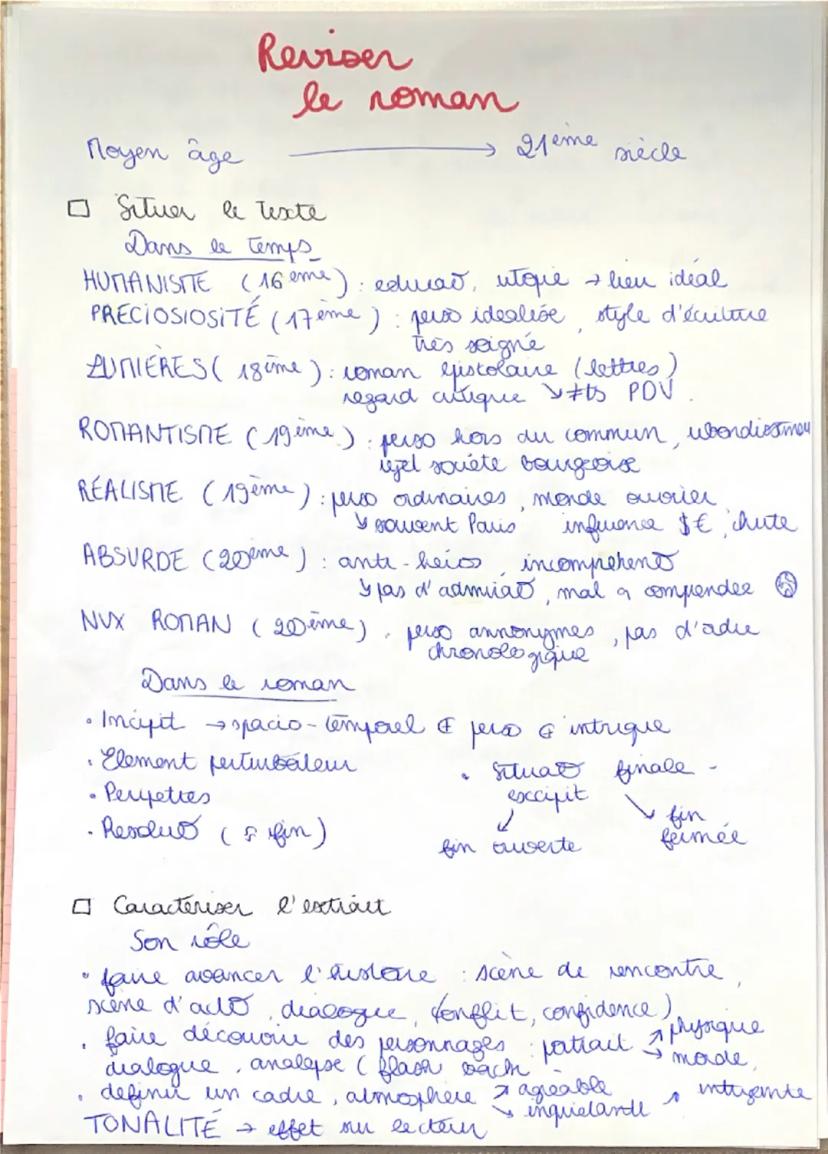 Reviser
le roman
Moyen âge → 21ème siècle
□ Situer le texte
Dans le temps
HUMANISME (16ème) : educaÕ, utopie → lieu idéal
PRECIOSIOSITÉ (17ème) : perso idealisé, style d'écriture
très soigné
LUMIÈRES (18ème) : roman épistolaire (lettres)
regard critique ↘ ≠ts PDV.
ROMANTISME (19ème) : perso hors du commun,
rejet société bourgeoise
RÉALISME (19ème) : perso ordinaires, monde ouvrier
↘ souvent Paris influence $€, chute
ABSURDE (20ème) : anti-héros, incompréhenÕ
↘ pas d'admiraÕ, mal a comprendre
NVX ROMAN (20ème), perso annonymes, pas d'ordre
chronologique
Dans le roman
• Incipit → spacio-temporel perso intrigue
• Element perturbateur
• Peripeties
• ResoluÕ (fin)
• SituaÕ finale -
excipit
↙ ↘
fin ouverte
fin
fermée
□ Caractériser l'extrait
Son rôle
• faire avancer l'histoire : scène de rencontre,
scène d'actÕ, dialogue, conflit, confidence)
• faire découvrir des personnages : portrait ↗ physique
dialogue, analepse (flash back → morale,
• definir un cadre, atmosphère ↗ agréable
↘ inquietante ↗ intrigante
TONALITÉ → effet sur lecteur